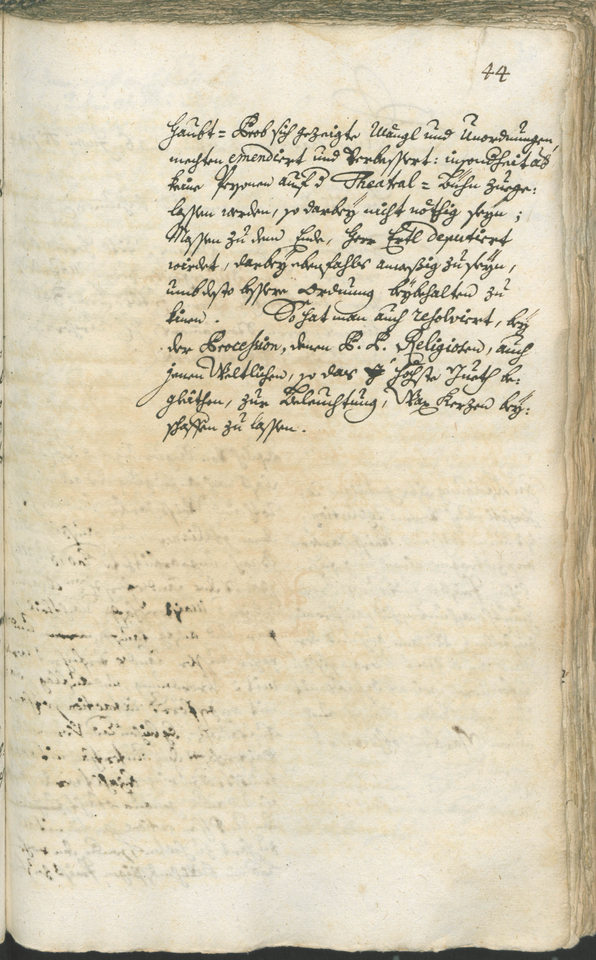 44
Haubt= Prob sich gezeigte Mängl und Unordnungen,
mechten emendiert und Verbessert: insonderheit aber
keine Persohnen auf d Theatral= Bühn zuege:
lassen werden, so darbeÿ nicht nöthig seyn ;
Massen zu dem Ende, Herr Ertl deputiert
wirdet, darbeÿ ebenfahls anwessig zu seyn,
umb desto bessere Ordnung beÿbehalten zu
kinen . So hat man auch resolviert, beÿ
der Procession, denen P. P. Religiosen, auch
jenen Weltlichen, so das höchste Gueth be:
gleithen, zur Beleuchtung, Wax Kerzen beÿ:
schaffen zu lassen .